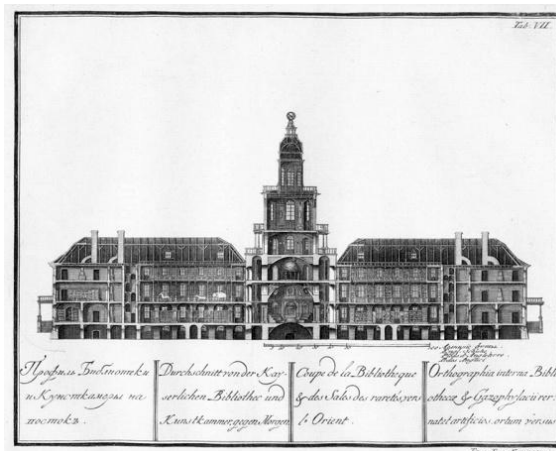 Tab. VII.
Профиль Библиотеки
и Кунсткаморы на
востокъ.
Durchschnitt von der Kay-
serlichen Bibliothec und
Kunstkammer, gegen Morgen
Coupe de la Bibliotheque
& des Sales des raretés, vers
l'Orient.
Orthographia interna Bibli
othecæ & Gazophylacii rer.
natet artificios. ortum versus